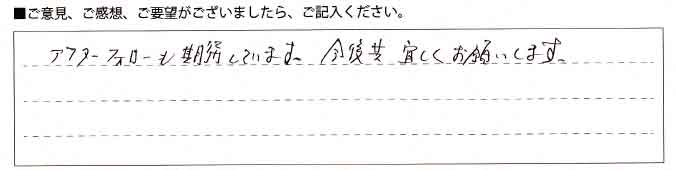 ■ご意見、ご感想、ご要望がございましたら、ご記入ください。
アフターフォローも期待しています。今後共宜しくお願いします。